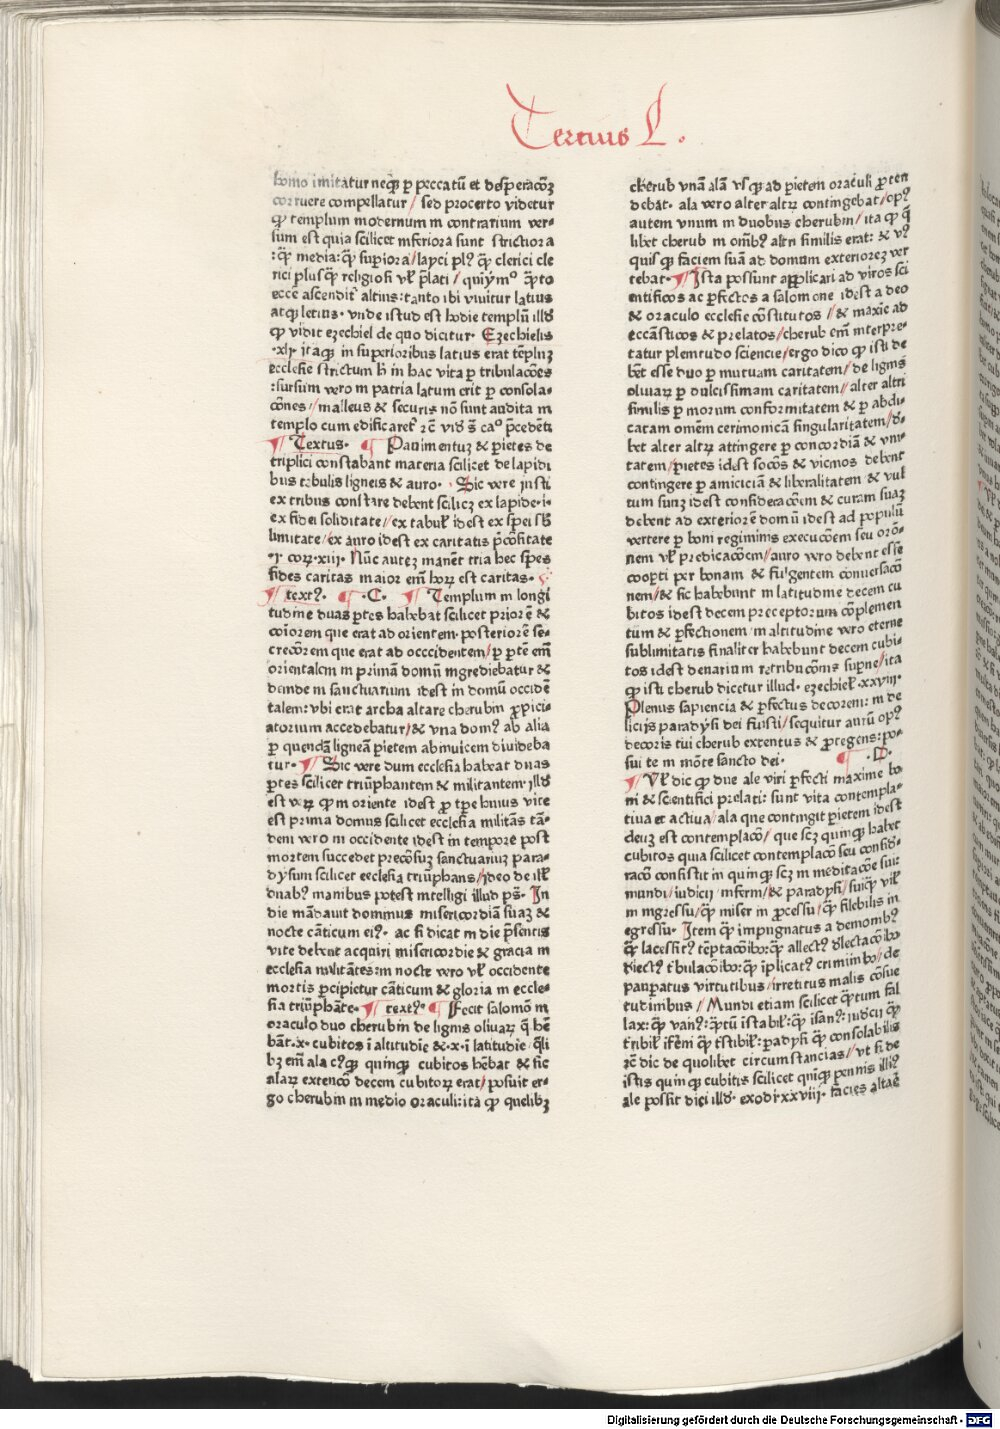 Tercius L.
homo imitatur neqȝ ꝑ peccatū et desperacōȝ
corruere compellatur / sed procerto videtur
ꝙ templum modernum in contrarium ver-
sum est quia scilicet inferiora sunt strictiora
: ꝙ̄ media: ꝙ̄ supiora / layci plꝰ ꝙ̄ clerici cle
rici plusꝙ̄ religiosi vł p̄lati / quiymo ꝙ̄to
ecce ascendit altius: tanto ibi viuitur latius
atqȝ letius. vnde istud est hodie templū illud
ꝙ vidit ezechiel de quo dicitur. Ezechielis
.xli. itaqȝ in superioribus latius erat tēplūȝ
ecclesie strictum h̄ in hac vita ꝑ tribulacōes
: sursum vero in patria latum erit ꝑ consola-
cōnes / malleus & securis nō sunt audita in
templo cum edificaret᷑
¶ Textus. ¶ Pauimentuȝ & ꝑietes de
triplici constabant materia scilicet de lapidi
bus tabulis ligneis & auro. Sic vere iusti
ex tribus constare debent scilicȝ ex lapide .i.
ex fidei soliditate / ex tabuł idest ex spei sb̄
limitate / ex auro idest ex caritatis p̄ciositate
.i. corꝝ .xiij. Nūc auteȝ manēt tria hec spes
fides caritas maior em̄ hoꝝ est caritas.
¶ textꝰ. ¶ .C. ¶ Templum in longi
tudine duas ꝑtes habebat scilicet priorē &
cōiorem que erat ad orientem. posteriorē se-
cretiorem que erat ad occcidentem / ꝑ ꝑtē em̄
orientalem in primām domū ingrediebatur &
deinde in sanctuarium idest in domū occidē
talem: vbi erat archa altare cherubin ꝓpici-
atorium accedebatur / & vna domꝰ ab alia
ꝑ quendā ligneām ꝑietem abinuicem diuideba
tur. ¶ Sic vere dum ecclesia habeat duas
ꝑtes scilicet triūphantem & militantem. illđ
est veꝝ ꝙ in oriente idest ꝑ tꝑe huius vite
est prima domus scilicet ecclesia militās tā-
dem vero in occidente idest in tempore post
mortem succedet preciosuȝ sanctuariuȝ para-
dysum scilicet ecclesia triūphans / ideo de ill̄
duabꝰ manibus potest intelligi illud pš. In
die mādauit dominus misericordiā suaȝ &
nocte cāticum eiꝰ. ac si dicat in die p̄sentis
vite debent acquiri misericordie & gracia in
ecclesia militātes: in nocte vero vł occidente
mortis ꝑcipictur cāticum & gloria in eccle-
sia triūphāte. ¶ textꝰ. ¶ Fecit salomō in
oraculo duo cherubin de lignis oliuaꝝ q̄ hē
bāt .x. cubitos ī altitudie & .x. ī latitudie. q̄li
bȝ em̄ ala quinqȝ cubitos hēbat & sic
alaꝝ extencō decem cubitoꝝ erat / posuit er-
go cherubin in medio oraculi: ita ꝙ quelibȝ
cherub vnā alā vsqȝ ad ꝑietem oraculi ꝓten
debat. ala vero alter alteꝝ contingebat / opꝰ
autem vnum in duobus cherubin / ita ꝙ q̄
libet cherub in omībꝰ altri similis erat: & vꝰ
quisqȝ faciem suā ad domum exterioreȝ ver
tebat. ¶ Ista possunt applicari ad viros sci
entificos ac ꝑfectos a salomone idest a deo
& oraculo ecclesie cōstitutos / & maxie ad
eccāsticos & prelatos / cherub em̄ interpre-
tatur plenitudo sciencie / ergo dico ꝙ isti de
bēt esse duo ꝑ mutuam caritatem / de lignis
oliuaꝝ ꝑ dulcissimam caritatem / alter altri
similis ꝑ morum conformitatem & ꝑ abdi
catam omēm cerimonicām singularitatem / đ-
bet alter alteꝝ attingere ꝑ concordiā & vni
tatem / ꝑietes idest socōs & vicinos debent
contingere ꝑ amiciciā & liberalitatem & vul
tum suuȝ idest consideracōem & curam suaȝ
debent ad exteriorē domū idest ad populū
vertere ꝑ boni regiminis execucōem seu orō-
nem vł predicacōem / auro vero debent esse
cooꝑti per bonam & fulgentem conuersacō
nem / & sic habebunt in latitudine decem cu
bitos idest decem preceptorum cōplemen
tum & ꝑfectionem in altitudine vero eterne
sublimitatis finaliter habebunt decem cubi-
tos idest denarium in retribucōnis suꝑne / ita
ꝙ isti cherub dicetur illud. ezechieł .xxviij.
Plenus sapiencia & ꝑfectus decorem: in de
licijs paradysi dei fuisti / sequitur aurū opꝰ
decoris tui cherub extentus & ꝓtegens: po-
sui te in mōte sancto dei. ¶ .D.
¶ Vł dic ꝙ due ale viri ꝑfecti maxime bo
ni & scientifici prelati: sunt vita contempla-
tiua et actiua / ala que contingit ꝑietem idest
deuȝ est contemplacō / que scȝ quinqȝ habet
cubitos quia scilicet contemplacō seu consid-
racō consistit in quinqȝ scȝ in meditacōe sui:
mundi / iudicij inferni / & paradysi / sui ꝙ̄ vił
in ingressu / ꝙ̄ miser in ꝓcessu / ꝙ̄ flebilis in
egressu. Item ꝙ̄ impugnatus a demonibꝰ
ꝙ̄ lacessitꝰ tēptacōibꝰ: ꝙ̄ allectꝰ đlectacōibꝰ
điectꝰ tʼbulacōibꝰ: ꝙ̄ īplicatꝰ criminibꝰ / de
pauꝑatus virtutibus / irretitus malis cōsue
tudinibus / Mundi etiam scilicet ꝙ̄tum fal
lax: ꝙ̄ vanꝰ: ꝙ̄tū īstabił: ꝙ̄ īsanꝰ: iudicij ꝙ̄
tʼribił īferni ꝙ̄ tʼstibił: ꝑadysi ꝙ̄ consolabilis
rē dic de quolibet circumstancias / vt si de
istis quinqȝ cubitis scilicet quīqȝ pennis
ale possit dici illđ. exodi .xxviij. facies altarē
Digitalisierung gefördert durch die Deutsche Forschungsgemeinschaft - DFG